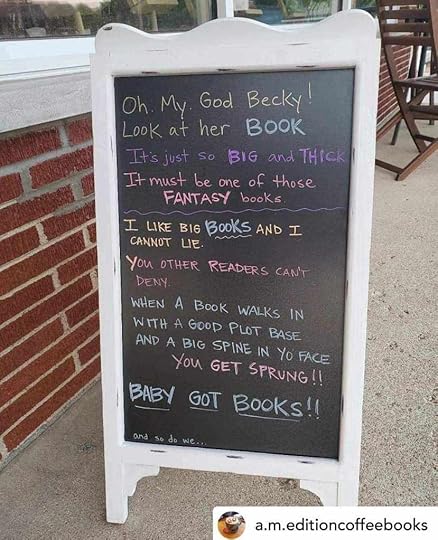 Oh. My. God Becky!
Look at her BOOK
It's just so BIG and THICK
It must be one of those
FANTASY books.
I LIKE BIG BOOKS AND I
CANNOT LIE.
YOU OTHER READERS CAN'T
DENY.
WHEN A BOOK WALKS IN
WITH A GOOD PLOT BASE
AND A BIG SPINE IN YO FACE
YOU GET SPRUNG!!
BABY GOT BOOKS!!
and so do we...
a.m.editioncoffeebooks